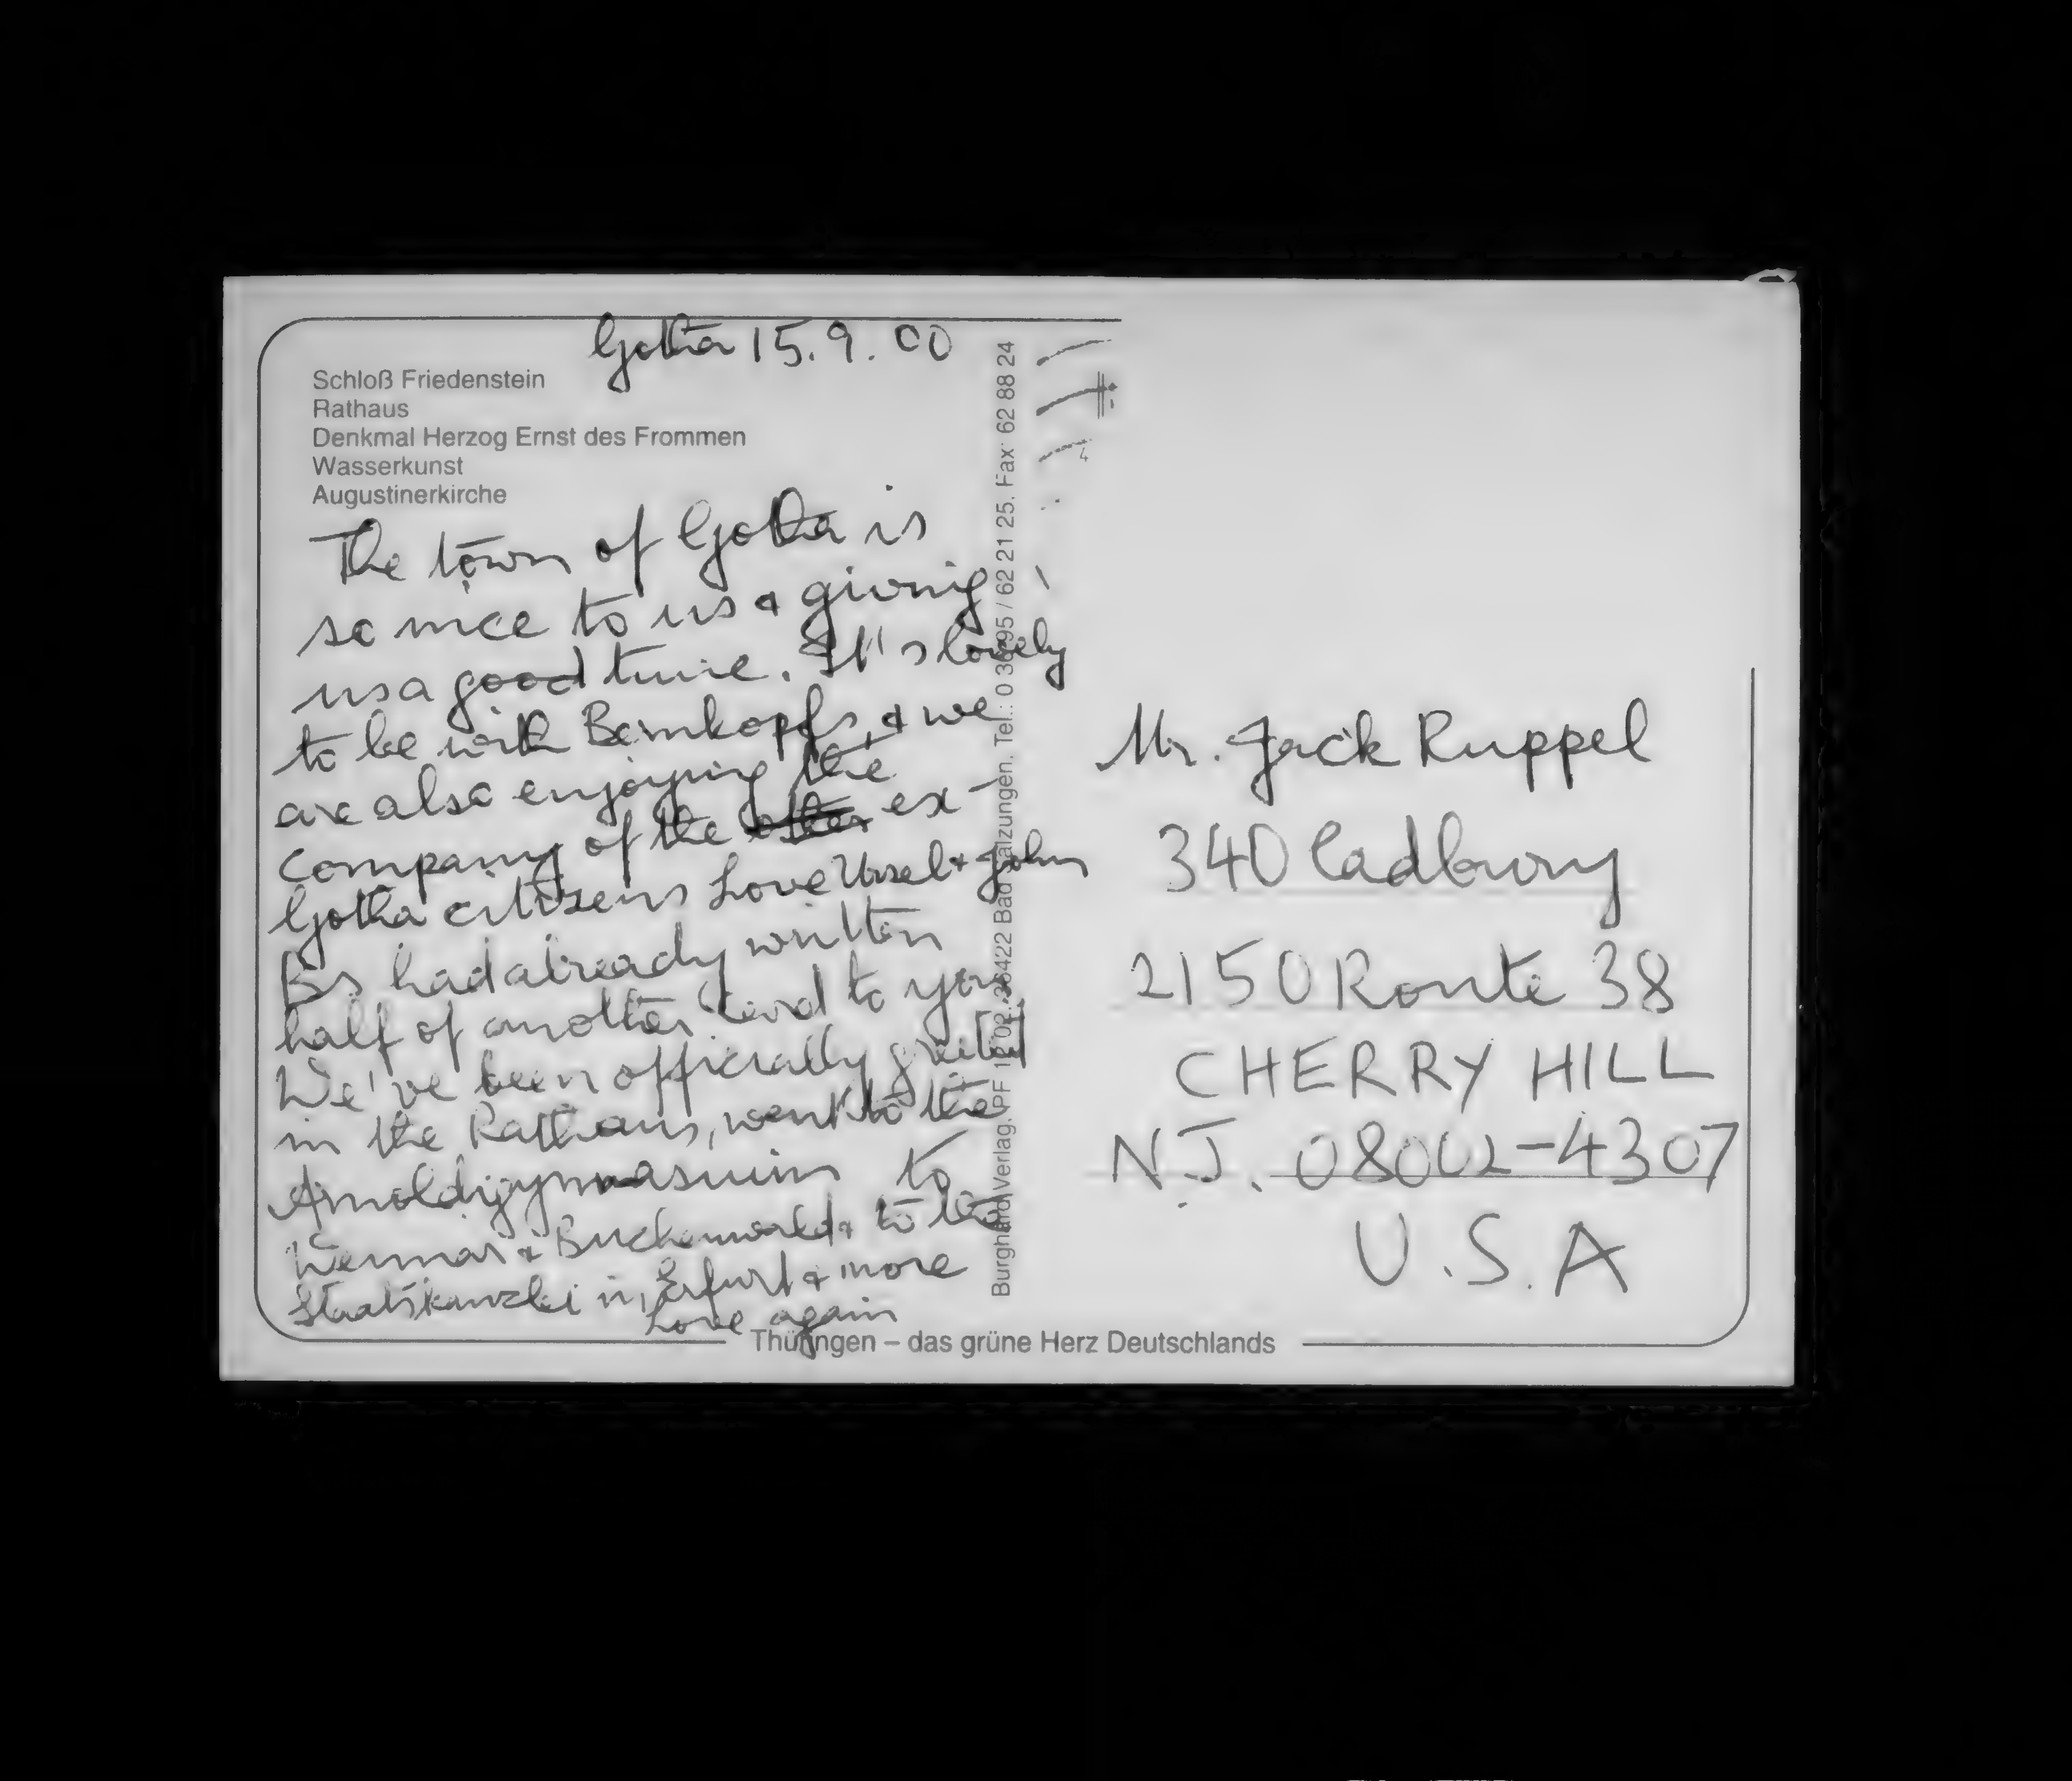 Gotha 15.9.00
Schloß Friedenstein
Rathaus
Denkmal Herzog Ernst des Frommen
Wasserkunst
Augustinerkirche
The town of Gotha is
so nice to us & giving
us a good time. It's lovely
to be with Bernkopfs, & we
are also enjoying the
company of the ex-
Gotha citizens Love Ursel & John
Bs had already written
half of another card to you
We've been officially greeted
in the Rathaus, went to the
Arnoldigymnasium to
Weimar & Buchenwald & to the
Staatskanzlei in Erfurt & more
Love again
Burghard Verlag. PF 12 02. 36422 Bad Salzungen. Tel.: 0 36 95 / 62 21 25. Fax: 62 88 24
Mr. Jack Ruppel
340 Cadbury
2150 Route 38
CHERRY HILL
N.J. 08002-4307
U.S.A
Thüringen – das grüne Herz Deutschlands